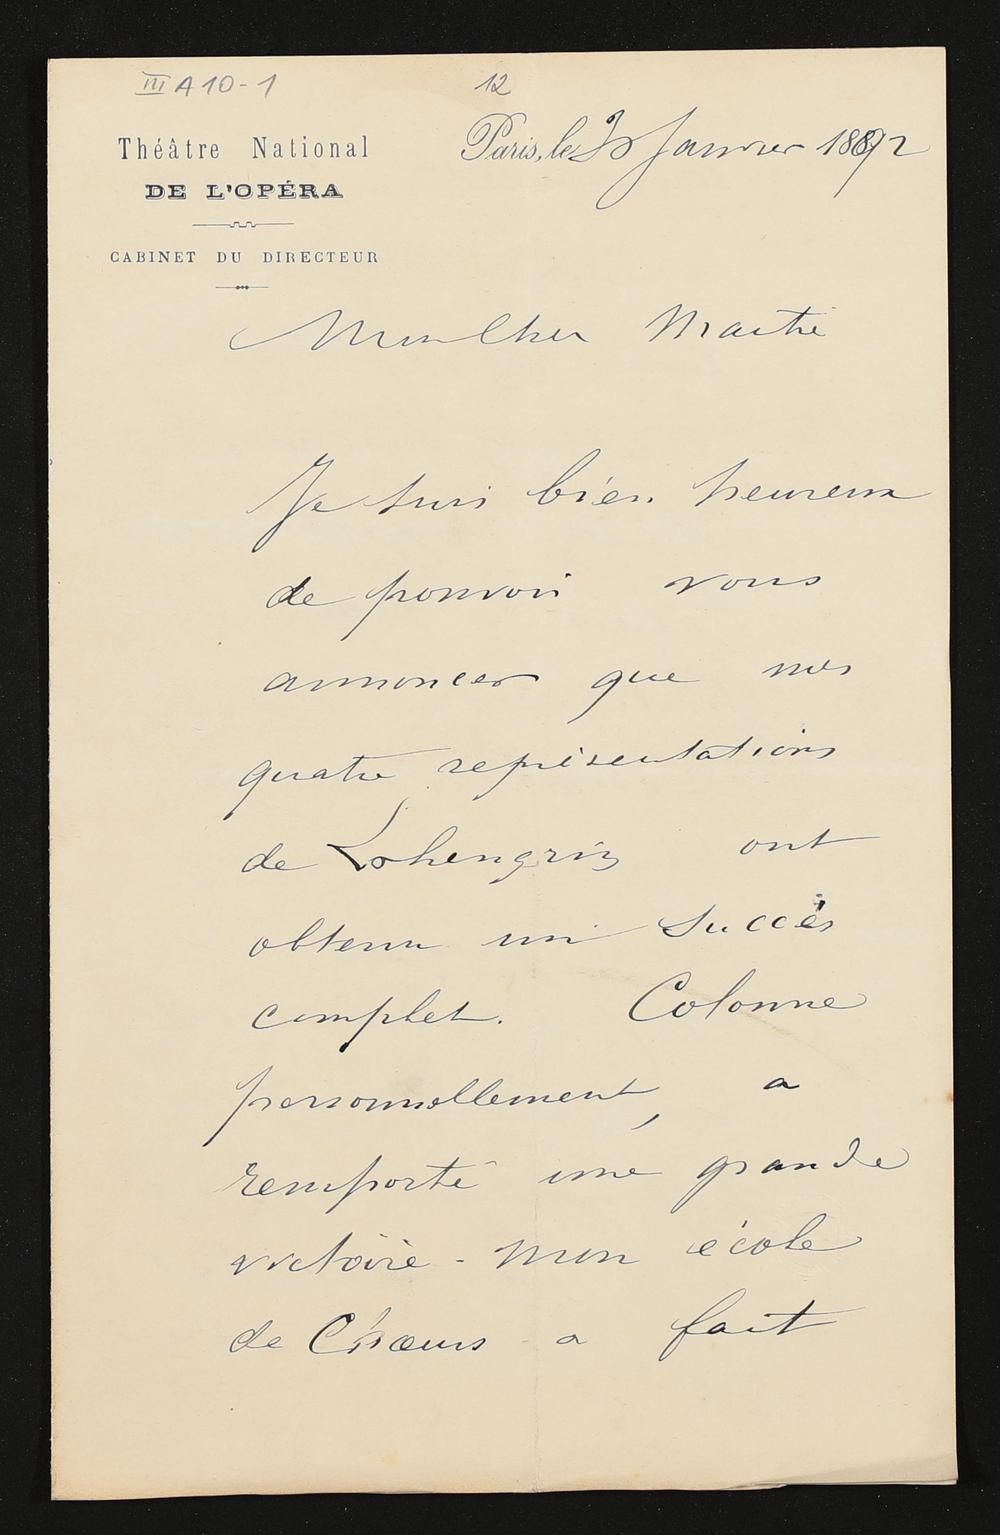 III A 10-1
12
Théâtre National
DE L'OPÉRA
CABINET DU DIRECTEUR
Paris, le 30 Janvier 1892
Mon Cher Maitre
Je suis bien heureux
de pouvoir vous
annoncer que nos
quatre représentations
de Lohengrin ont
obtenu un succès
complet. Colonne
personnellement, a
remporté une grande
victoire - mon école
de Chœurs a fait